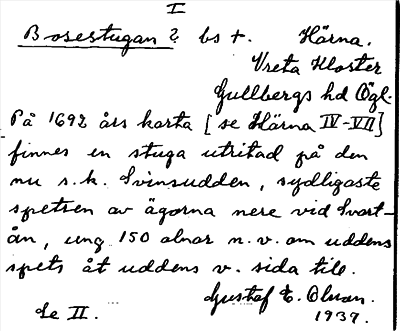 I
Bosestugan? bs †. Härna.
Vreta Kloster
Gullbergs hd Ögl.
På 1692 års karta [se Härna IV-VII]
finnes en stuga utritad på den
nu s.k. Svinsudden, sydligaste
spetsen av ägorna nere vid Svart-
ån, ung. 150 alnar n.v. om uddens
spets åt uddens v. sida till.
Gustaf E. Olsson.
Se II. 1939.